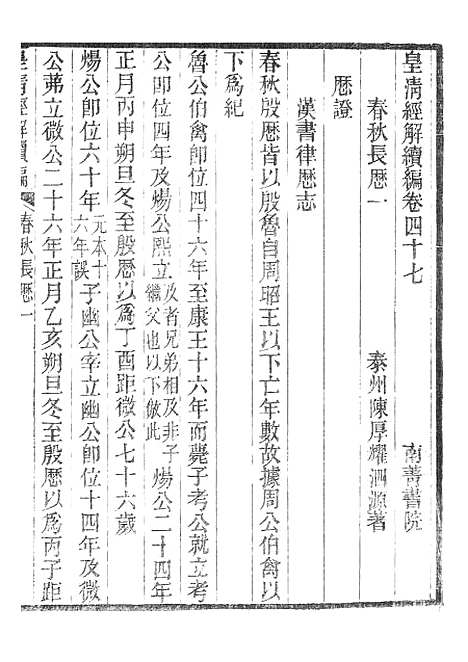 皇清經解續編卷四十七　南菁書院
春秋長厤一　泰州陳厚耀泗源著
厤證
漢書律厤志
春秋殷厤皆以殷魯自周昭王以下亡年數故據周公伯禽以
下爲紀
魯公伯禽卽位四十六年至康王十六年而薨子考公就立考
公卽位四年及煬公熙立及者兄弟相及非子繼父也以下倣此煬公二十四年
正月丙申朔旦冬至殷厤以爲丁酉距微公七十六歲
煬公卽位六十年元本十六年誤子幽公宰立幽公卽位十四年及微
公茀立微公二十六年正月乙亥朔旦冬至殷厤以爲丙子距
皇清經解續編　春秋長厤一